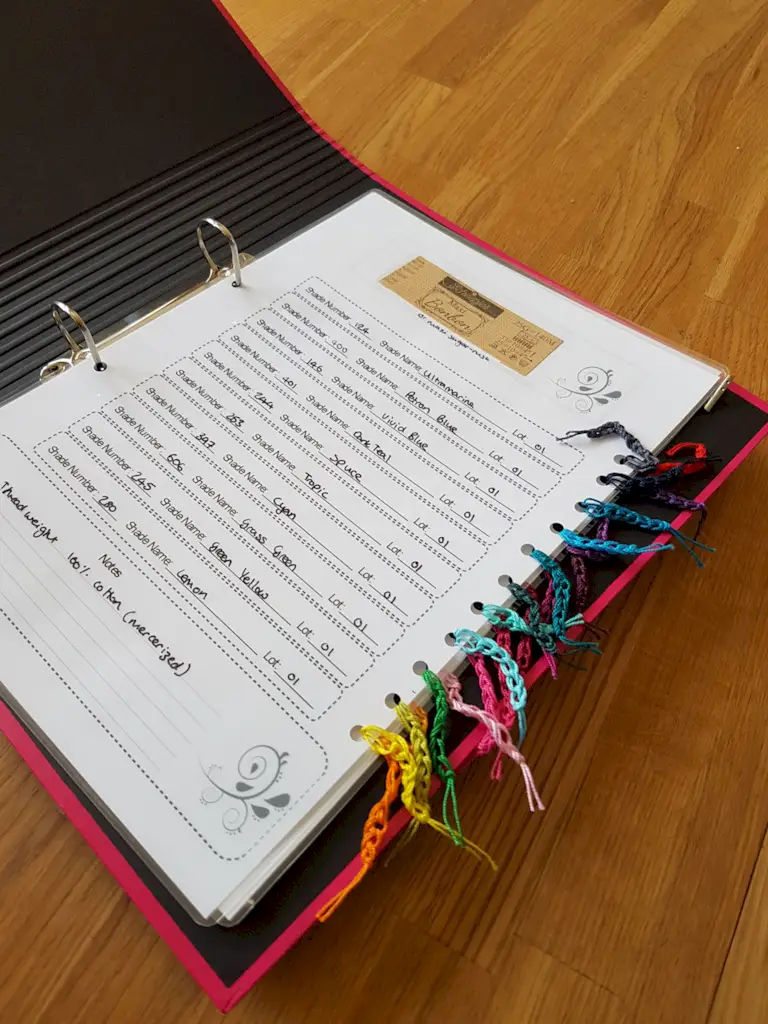 Maxi
Bonbon
or maxi sugar rush
Shade Number: 124 Shade Name: Ultramarine Lot: 01
Shade Number: 400 Shade Name: Petrol Blue Lot: 01
Shade Number: 146 Shade Name: Vivid Blue Lot: 01
Shade Number: 401 Shade Name: Dark Teal Lot: 01
Shade Number: 244 Shade Name: Spruce Lot: 01
Shade Number: 253 Shade Name: Tropic Lot: 01
Shade Number: 397 Shade Name: Cyan Lot: 01
Shade Number: 606 Shade Name: Grass Green Lot: 01
Shade Number: 245 Shade Name: Green Yellow Lot: 01
Shade Number: 280 Shade Name: Lemon Lot: 01
Notes
Thread weight 100% cotton (mercerized)